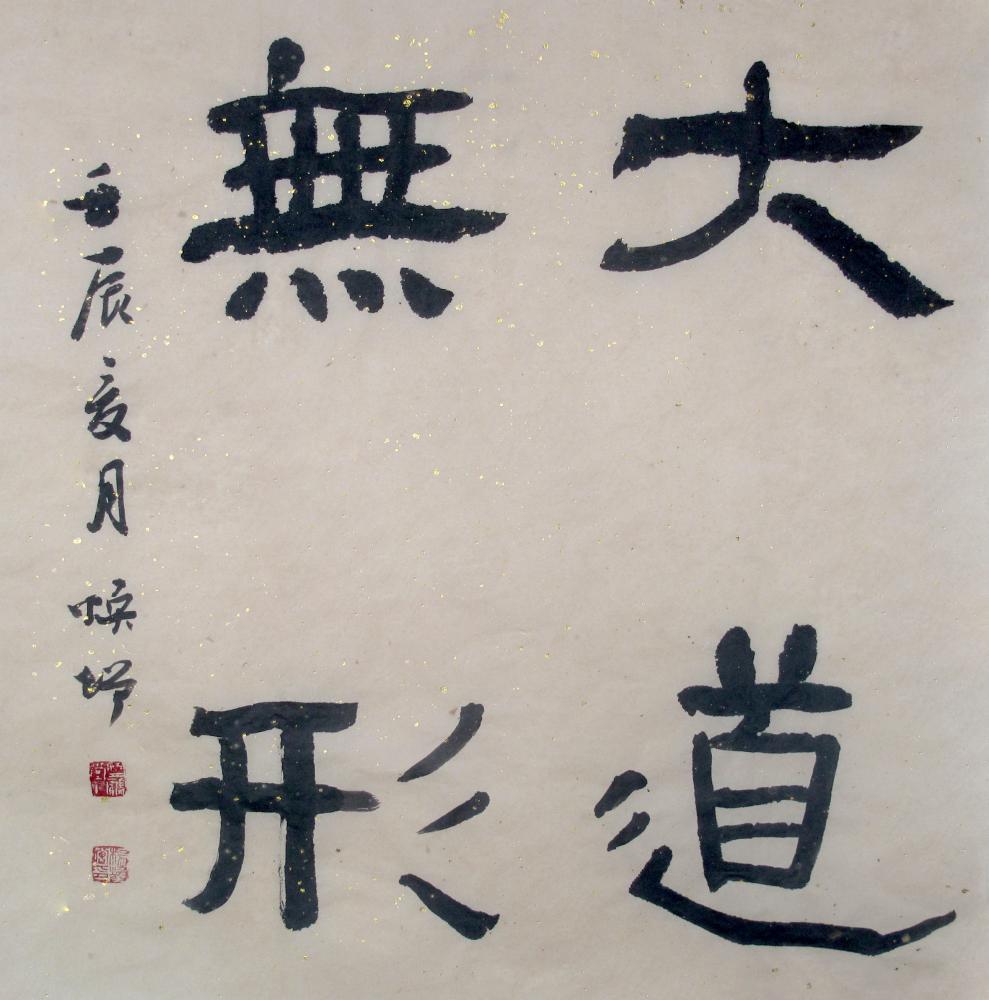 大道
無形
壬辰夏月 焕墀